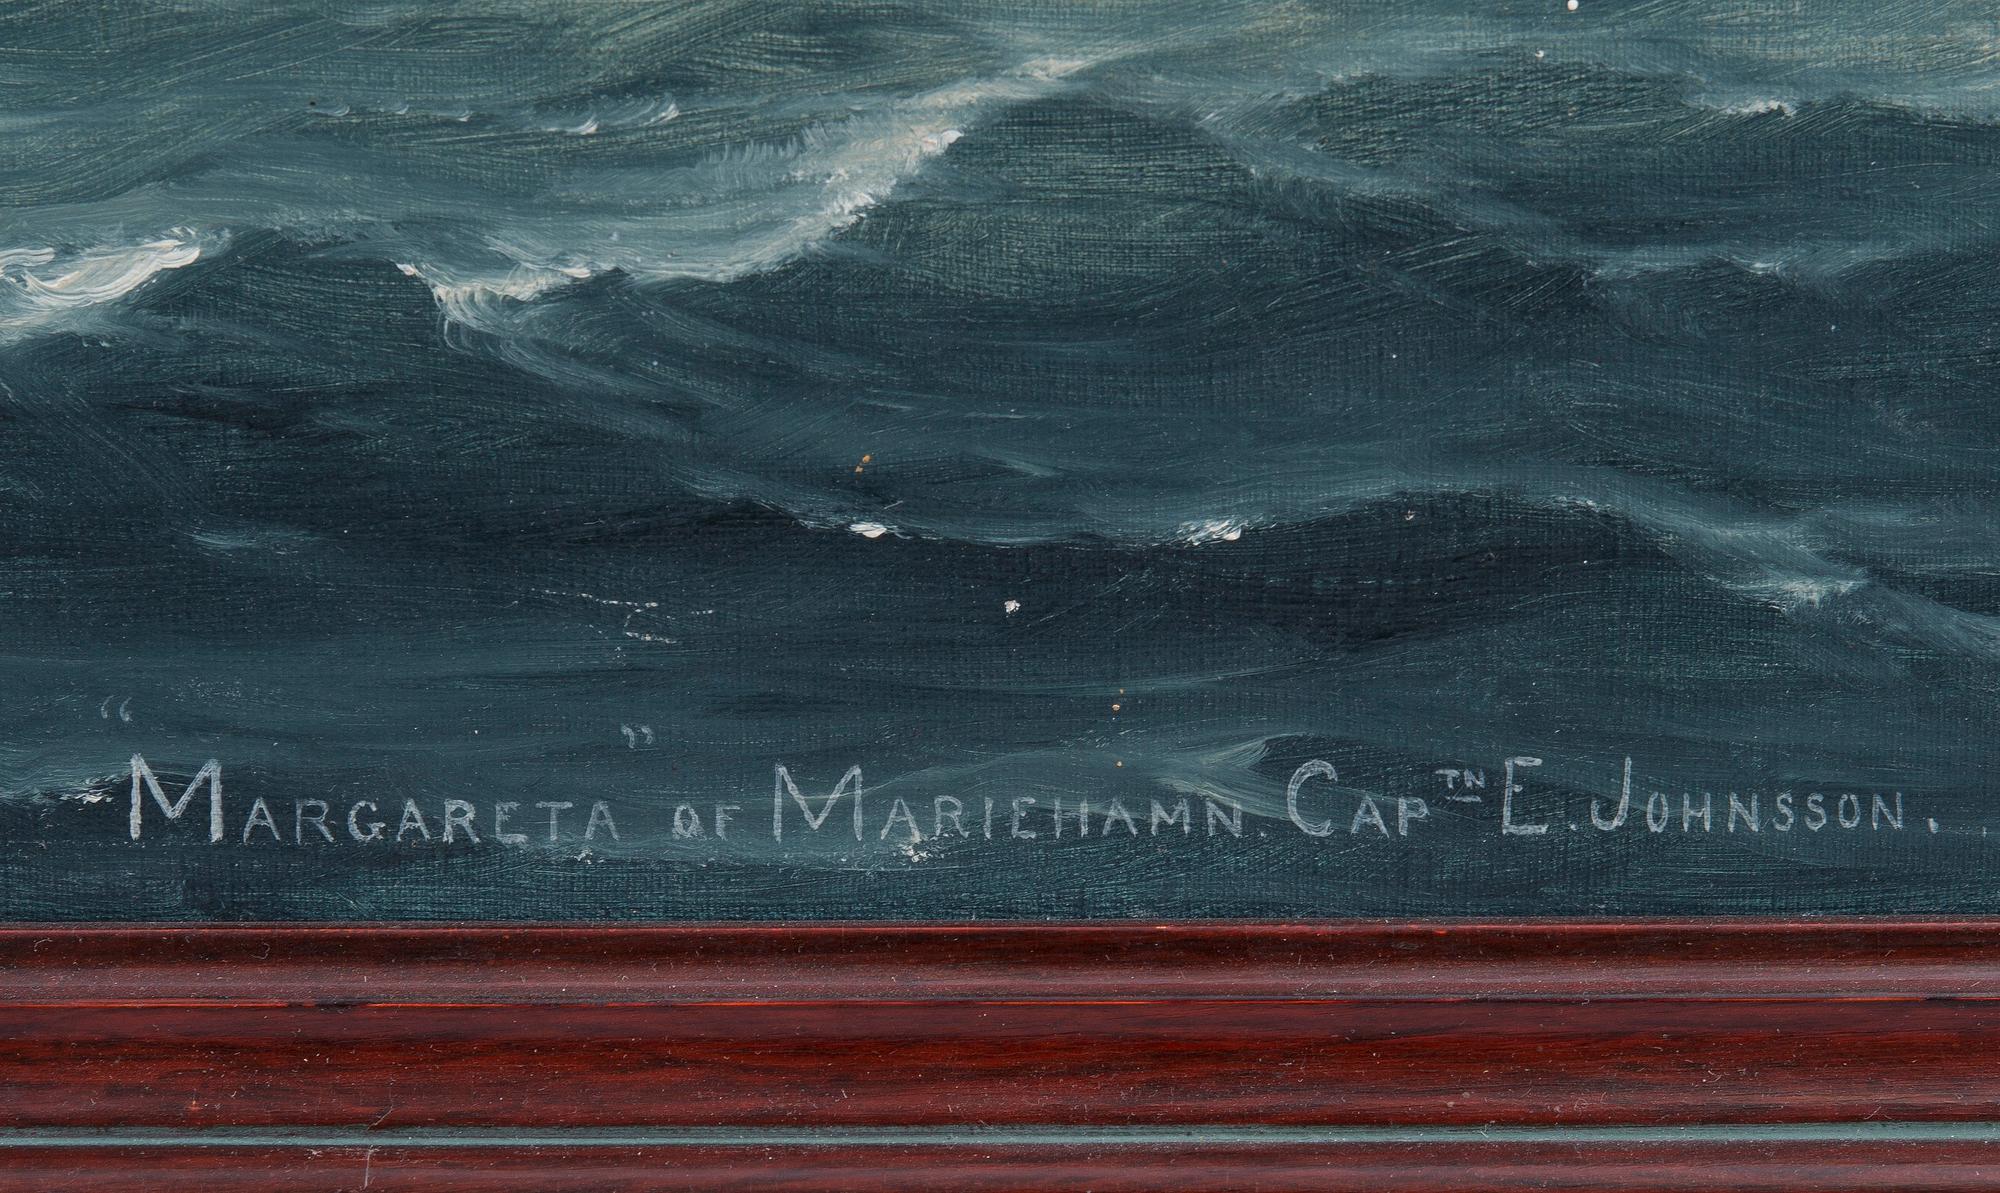 “Margareta” of Mariehamn. Captn E. Johnsson.